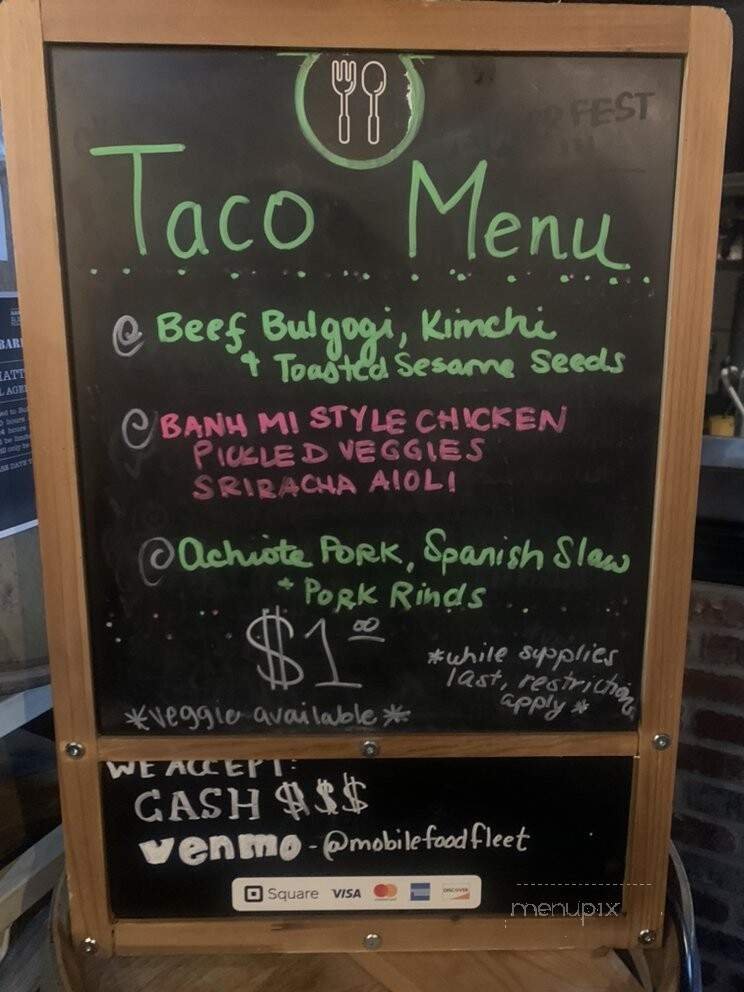 FEST
Taco Menu
Beef Bulgogi, Kimchi
+ Toasted Sesame Seeds
BANH MI STYLE CHICKEN
PICKLED VEGGIES
SRIRACHA AIOLI
Achiote PORK, Spanish Slaw
+ PORK Rinds
$1.00
*while supplies
last, restrictions
apply*
*veggie available*
WE ACCEPT:
CASH $$$
venmo - @mobilefoodfleet
Square VISA DISCOVER
menupix